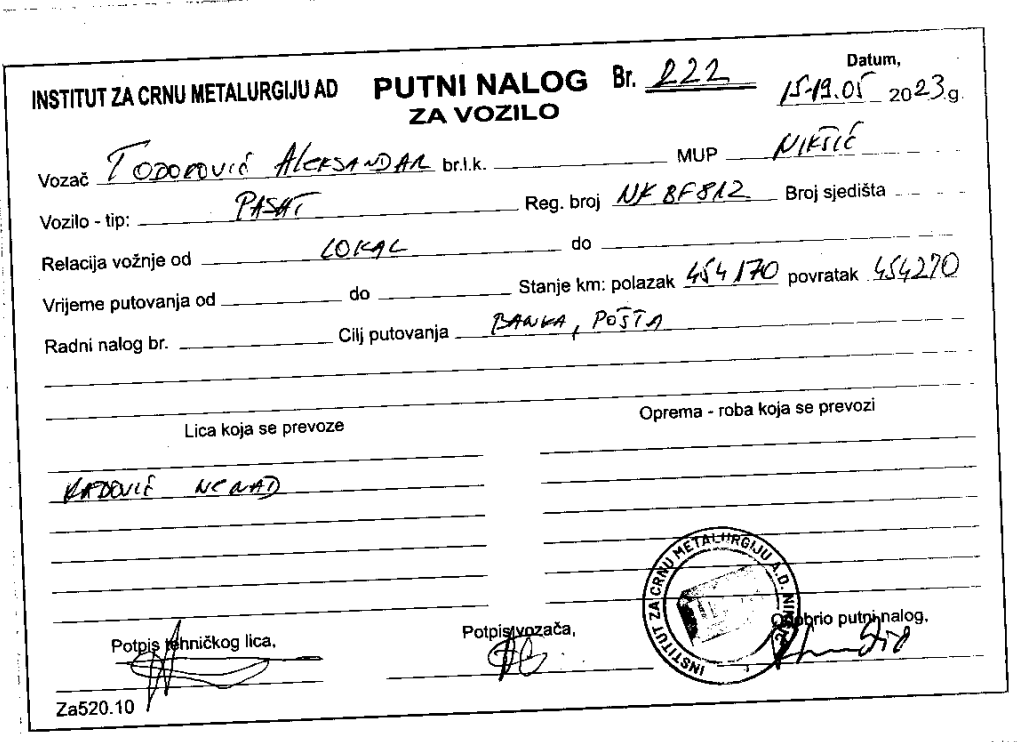 INSTITUT ZA CRNU METALURGIJU AD PUTNI NALOG Br. 222 Datum,
ZA VOZILO 15-19.05 2023.g.
Vozač TODOROVIĆ ALEKSANDAR br.l.k. MUP NIKŠIĆ
Vozilo - tip: PASAT Reg. broj NK BF812 Broj sjedišta
Relacija vožnje od LOKAL do
Vrijeme putovanja od do Stanje km: polazak 454170 povratak 454270
Radni nalog br. Cilj putovanja BANKA, POŠTA
Lica koja se prevoze Oprema - roba koja se prevozi
RADOVIĆ NENAD
INSTITUT ZA CRNU METALURGIJU A.D.
Potpis tehničkog lica, Potpis vozača, Odobrio putni nalog,
Za520.10